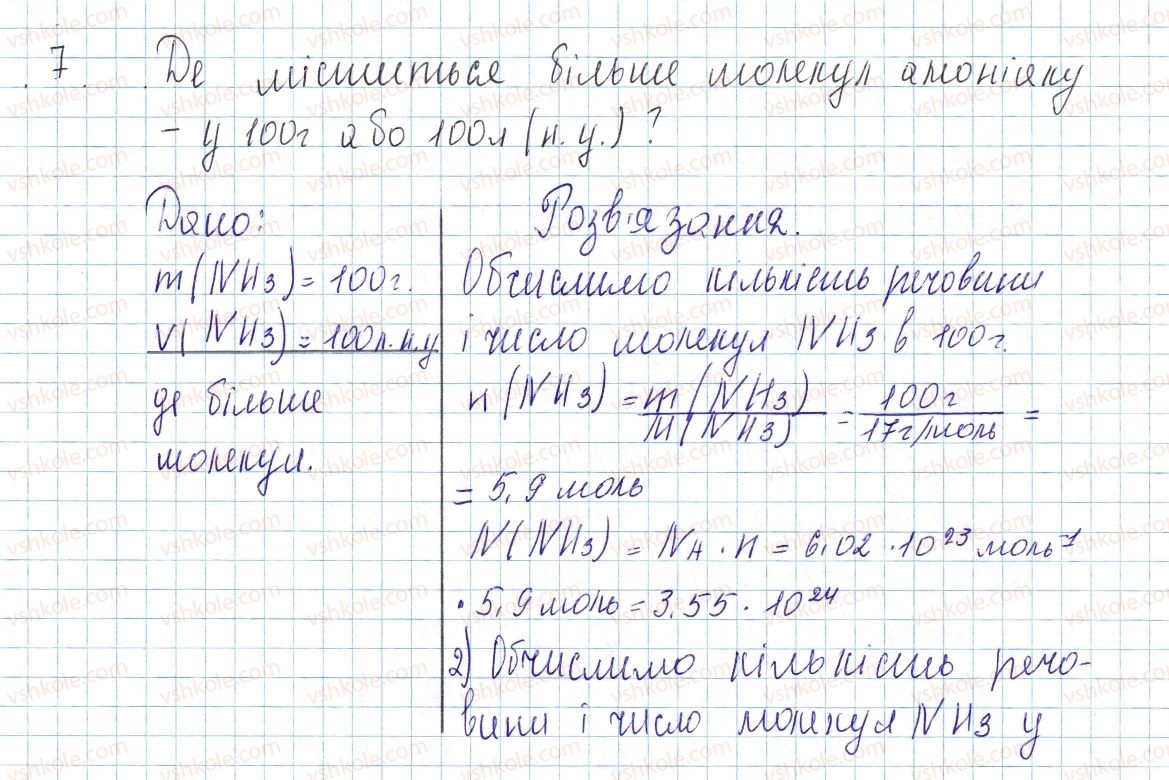 7. Де міститься більше молекул амоніаку
- у 100г або 100л (н. у.)?
Дано:
m(NH3) = 100г.
V(NH3) = 100л.н.у
де більше
молекул.
Розв'язання.
Обчислимо кількість речовини
і число молекул NH3 в 100г.
n(NH3) = m(NH3)/M(NH3) = 100г/17г/моль =
= 5,9 моль
N(NH3) = NA · n = 6,02 · 10²³ моль⁻¹
· 5,9 моль = 3,55 · 10²⁴
2) Обчислимо кількість речо-
вини і число молекул NH3 у